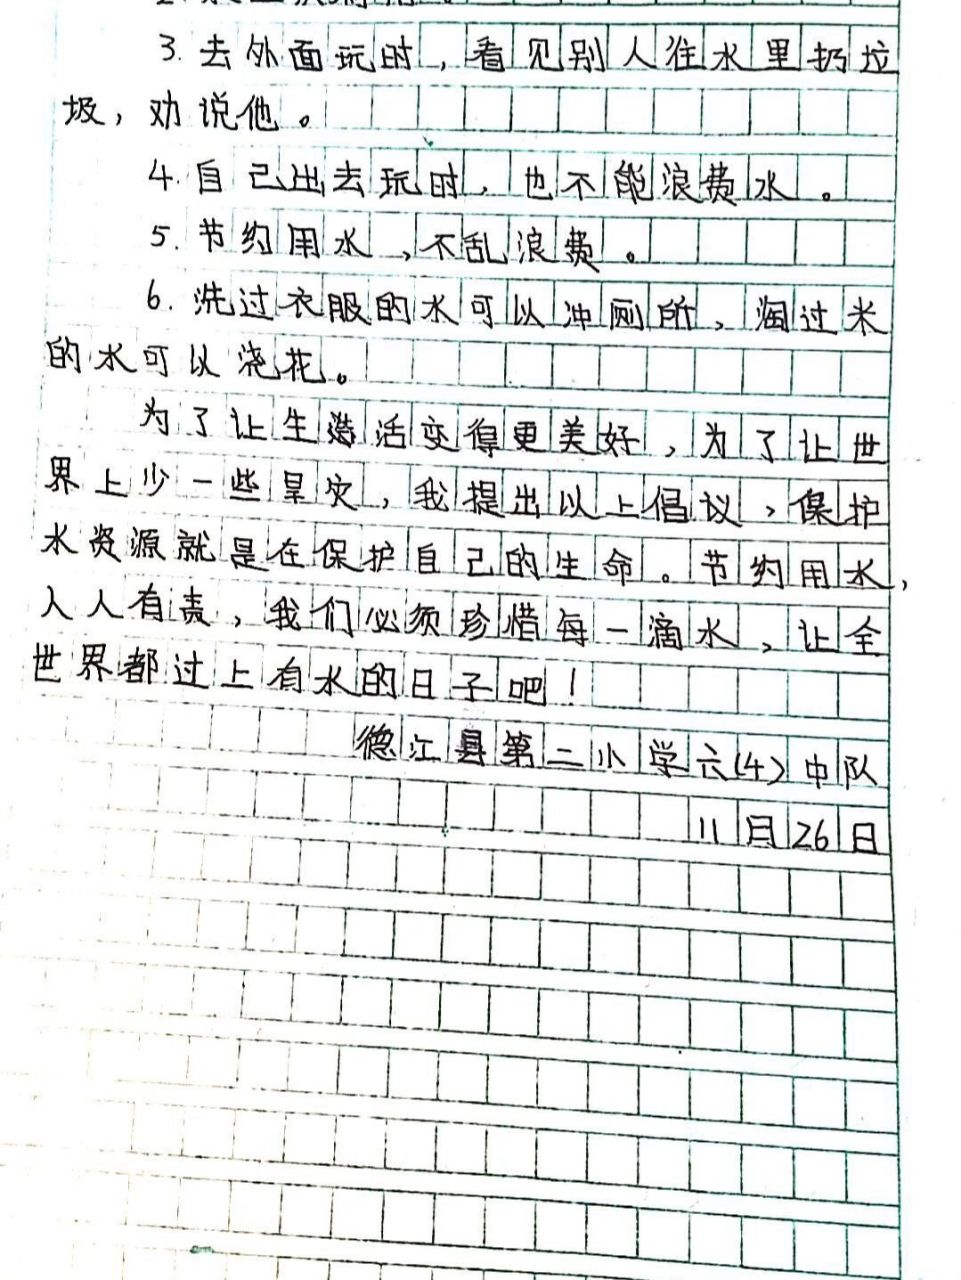 3.去外面玩时，看见别人往水里扔垃
圾，劝说他。
4.自己出去玩时，也不能浪费水。
5.节约用水，不乱浪费。
6.洗过衣服的水可以冲厕所，淘过米
的水可以浇花。
为了让生活变得更美好，为了让世
界上少一些旱灾，我提出以上倡议，保护
水资源就是在保护自己的生命。节约用水，
人人有责，我们必须珍惜每一滴水，让全
世界都过上有水的日子吧！
德江县第二小学六(4)中队
11月26日